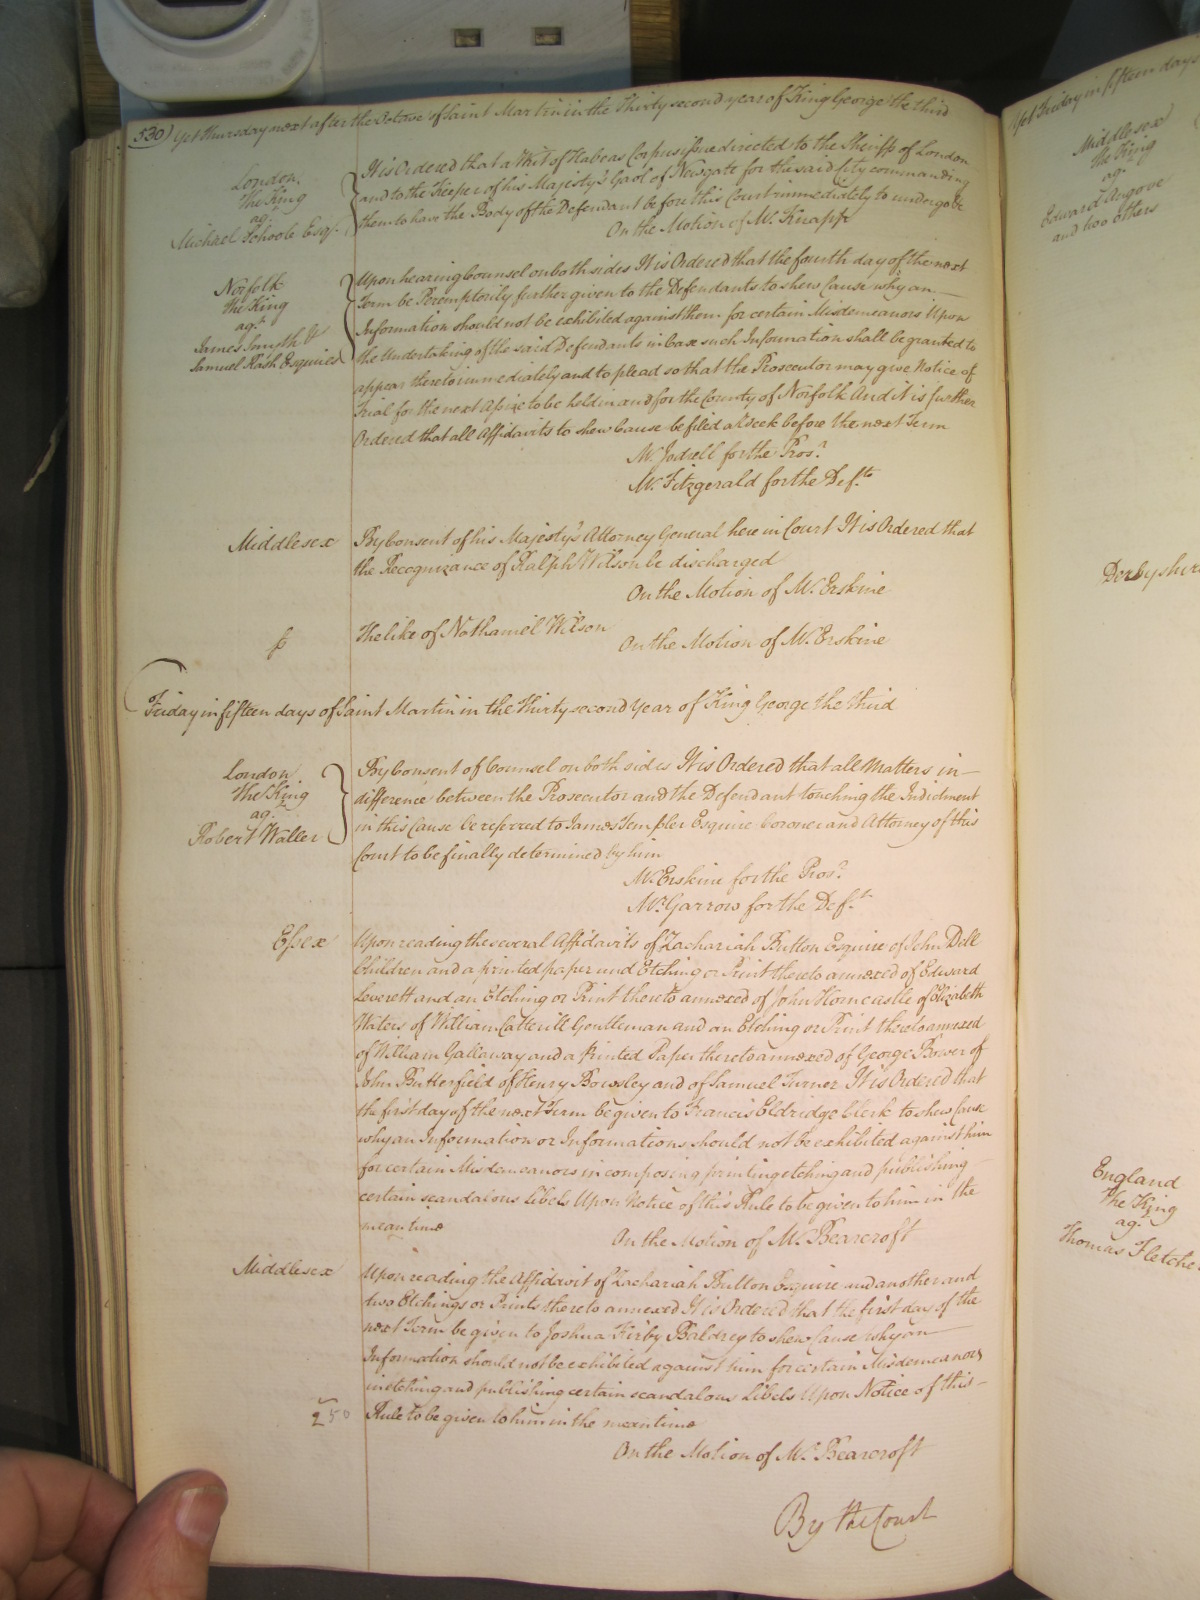 530) Yet Thursday next after the Octave of Saint Martin in the Thirty second year of King George the third
London.
the King
agt
Michael Schoole Esqr.
It is Ordered that a Writ of Habeas Corpus issue directed to the Sheriff of London
and to the Keeper of his Majesty's Gaol of Newgate for the said City commanding
them to have the Body of the Defendant before this Court immediately to undergo &c
On the Motion of Mr. Knapp
Norfolk
the King
agt
James Smyth &
Samuel Rash Esquires
Upon hearing Counsel on both sides It is Ordered that the fourth day of the next
Term be Peremptorily further given to the Defendants to shew Cause why an
Information should not be exhibited against them for certain Misdemeanors Upon
the Undertaking of the said Defendants in Case such Information shall be granted to
appear thereto immediately and to plead so that the Prosecutor may give Notice of
Trial for the next Assize to be held in and for the County of Norfolk And it is further
Ordered that all Affidavits to shew Cause be filed a Week before the next Term
Mr. Jodrell for the Prosr.
Mr. Fitzgerald for the Defts.
Middlesex
By Consent of his Majesty's Attorney General here in Court It is Ordered that
the Recognizance of Ralph Wilson be discharged
On the Motion of Mr. Erskine
The like of Nathaniel Wilson
On the Motion of Mr. Erskine
Friday in fifteen days of Saint Martin in the Thirty second Year of King George the third
London.
the King
agt
Robert Waller
By Consent of Counsel on both sides It is Ordered that all Matters in
difference between the Prosecutor and the Defendant touching the Indictment
in this Cause be referred to James Templer Esquire Coroner and Attorney of this
Court to be finally determined by him
Mr. Erskine for the Prosr.
Mr. Garrow for the Deft.
Essex
Upon reading the several Affidavits of Zachariah Button Esquire of John Dell
Children and a printed paper and Etching or Print thereto annexed of Edward
Leverett and an Etching or Print thereto annexed of John Horncastle of Elizabeth
Waters of William Catterill Gentleman and an Etching or Print thereto annexed
of William Gallaway and a Printed Paper thereto annexed of George Bower of
John Butterfield of Henry Bowsley and of Samuel Turner It is Ordered that
the first day of the next Term be given to Francis Eldridge Clerk to shew Cause
why an Information or Informations should not be exhibited against him
for certain Misdemeanors in composing printing etching and publishing
certain scandalous Libels Upon Notice of this Rule to be given to him in the
mean time
On the Motion of Mr. Bearcroft
Middlesex
Upon reading the Affidavit of Zachariah Button Esquire and another and
two Etchings or Prints thereto annexed It is Ordered that the first day of the
next Term be given to Joshua Kirby Baldrey to shew Cause why an
Information should not be exhibited against him for certain Misdemeanors
in etching and publishing certain scandalous Libels Upon Notice of this
Rule to be given to him in the mean time
250
On the Motion of Mr. Bearcroft
By the Court
Yet Friday in fifteen days
Middlesex
the King
agt
Edward Angove
and two others
Derbyshire
England
the King
agt
Thomas Fletche